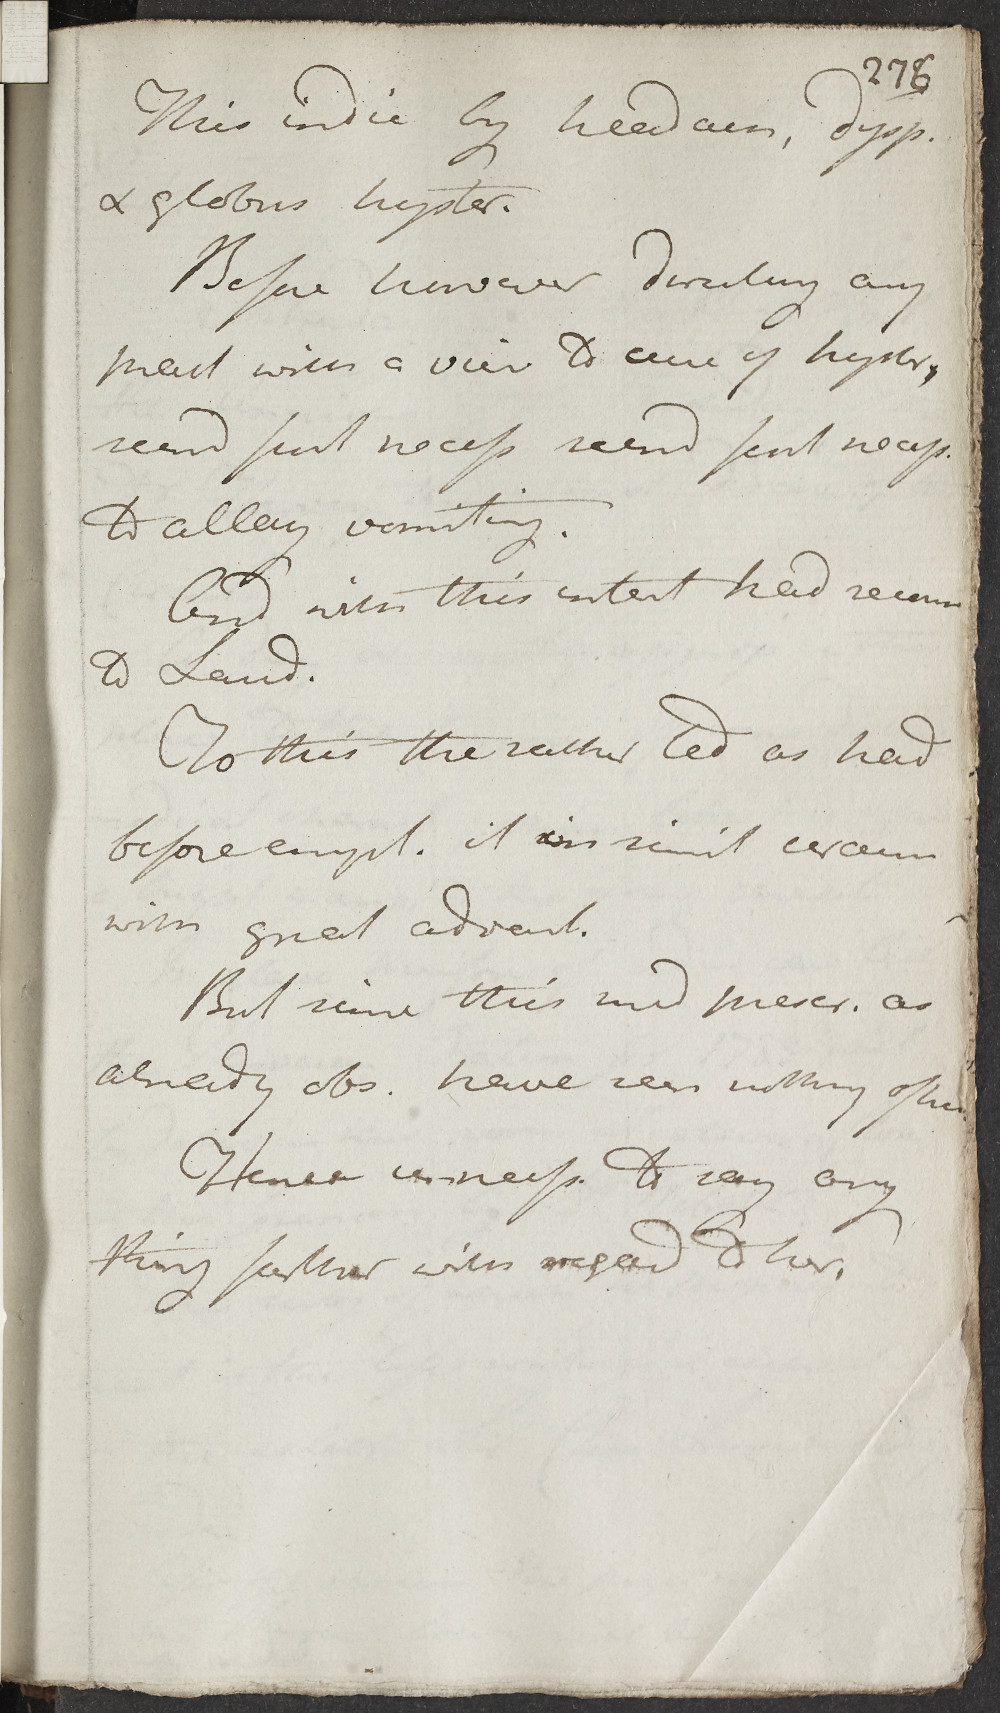 278
This indic by headaen, dysp.
& globus hyster.
Before however directing any
pract with a view to cure of hyster,
seemd first necess seemd first necess.
to allay vomiting.
And with this intent had recours
to Laud.
To this the rather led as had
before empl. it in simil
with great advant.
But since this med prescr. as
already obs. have seen nothing of her.
Hence unnecess. to say any
thing further with regard to her.